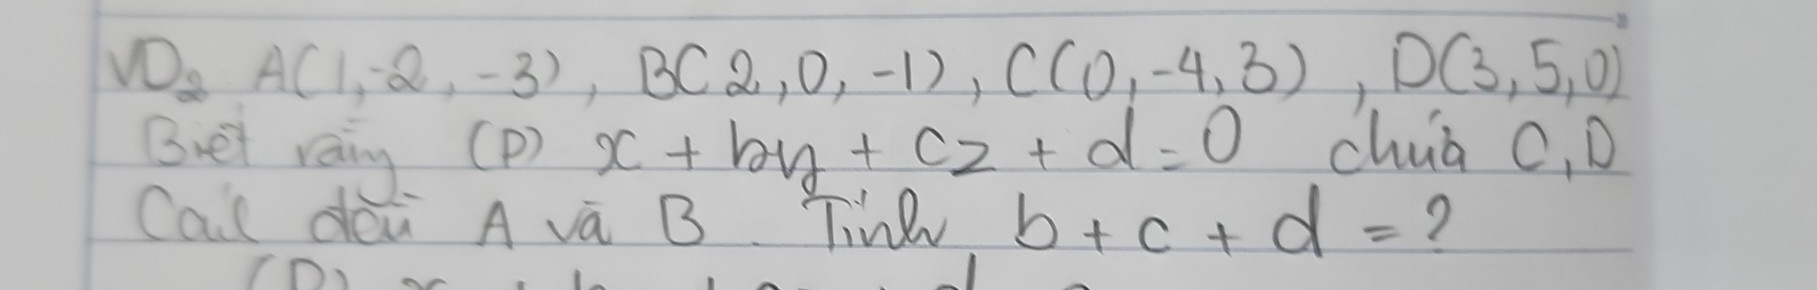 VD2 A(1,-2,-3), B(2,0,-1), C(0,-4,3), D(3,5,0)
Biết rằng (P) x + by + cz + d = 0 chứa C, D
Cách đều A và B. Tính b + c + d = ?